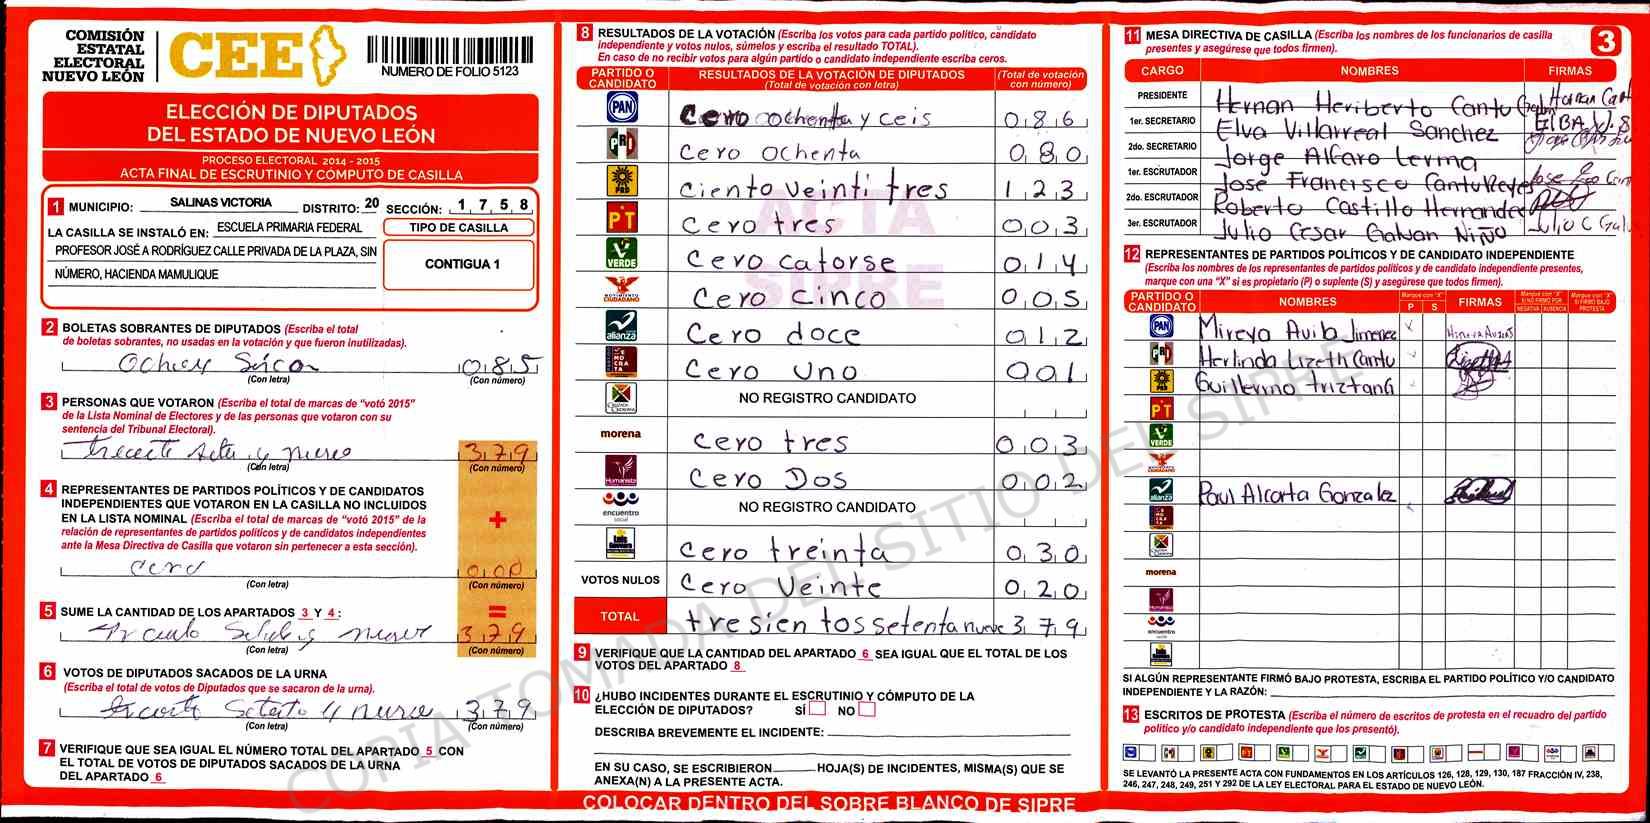 COMISIÓN
ESTATAL
ELECTORAL
NUEVO LEÓN
CEE
NUMERO DE FOLIO 5123
ELECCIÓN DE DIPUTADOS
DEL ESTADO DE NUEVO LEÓN
PROCESO ELECTORAL 2014 - 2015
ACTA FINAL DE ESCRUTINIO Y CÓMPUTO DE CASILLA
1 MUNICIPIO: SALINAS VICTORIA DISTRITO: 20 SECCIÓN: 1 7 5 8
LA CASILLA SE INSTALÓ EN: ESCUELA PRIMARIA FEDERAL
PROFESOR JOSÉ A RODRÍGUEZ CALLE PRIVADA DE LA PLAZA, SIN
NÚMERO, HACIENDA MAMULIQUE
TIPO DE CASILLA
CONTIGUA 1
2 BOLETAS SOBRANTES DE DIPUTADOS (Escriba el total
de boletas sobrantes, no usadas en la votación y que fueron inutilizadas).
085
(Con letra) (Con número)
3 PERSONAS QUE VOTARON (Escriba el total de marcas de "votó 2015"
de la Lista Nominal de Electores y de las personas que votaron con su
sentencia del Tribunal Electoral).
379
(Con letra) (Con número)
4 REPRESENTANTES DE PARTIDOS POLÍTICOS Y DE CANDIDATOS
INDEPENDIENTES QUE VOTARON EN LA CASILLA NO INCLUIDOS
EN LA LISTA NOMINAL (Escriba el total de marcas de "votó 2015" de la
relación de representantes de partidos políticos y de candidatos independientes
ante la Mesa Directiva de Casilla que votaron sin pertenecer a esta sección).
+
cero 000
(Con letra) (Con número)
=
5 SUME LA CANTIDAD DE LOS APARTADOS 3 Y 4:
379
(Con letra) (Con número)
6 VOTOS DE DIPUTADOS SACADOS DE LA URNA
(Escriba el total de votos de Diputados que se sacaron de la urna).
379
(Con letra) (Con número)
7 VERIFIQUE QUE SEA IGUAL EL NÚMERO TOTAL DEL APARTADO 5 CON
EL TOTAL DE VOTOS DE DIPUTADOS SACADOS DE LA URNA
DEL APARTADO 6
8 RESULTADOS DE LA VOTACIÓN (Escriba los votos para cada partido político, candidato
independiente y votos nulos, súmelos y escriba el resultado TOTAL).
En caso de no recibir votos para algún partido o candidato independiente escriba ceros.
PARTIDO O CANDIDATO
RESULTADOS DE LA VOTACIÓN DE DIPUTADOS
(Total de votación con letra)
(Total de votación con número)
PAN cero ochenta y ceis 086
PRI cero ochenta 080
PRD ciento veinti tres 123
PT cero tres 003
VERDE cero catorse 014
MOVIMIENTO CIUDADANO cero cinco 005
alianza cero doce 012
DEMOCRATA cero uno 001
NO REGISTRO CANDIDATO
morena cero tres 003
Humanista cero Dos 002
encuentro social NO REGISTRO CANDIDATO
cero treinta 030
VOTOS NULOS cero veinte 020
TOTAL tresientossetentanueve 379
ACTA
SIPRE
9 VERIFIQUE QUE LA CANTIDAD DEL APARTADO 6 SEA IGUAL QUE EL TOTAL DE LOS
VOTOS DEL APARTADO 8
10 ¿HUBO INCIDENTES DURANTE EL ESCRUTINIO Y CÓMPUTO DE LA
ELECCIÓN DE DIPUTADOS? SÍ NO
DESCRIBA BREVEMENTE EL INCIDENTE:
EN SU CASO, SE ESCRIBIERON HOJA(S) DE INCIDENTES, MISMA(S) QUE SE
ANEXA(N) A LA PRESENTE ACTA.
COLOCAR DENTRO DEL SOBRE BLANCO DE SIPRE
11 MESA DIRECTIVA DE CASILLA (Escriba los nombres de los funcionarios de casilla
presentes y asegúrese que todos firmen).
3
CARGO NOMBRES FIRMAS
PRESIDENTE Hernan Heriberto Cantu
1er. SECRETARIO Elva Villarreal Sanchez
2do. SECRETARIO Jorge Alfaro Lerma
1er. ESCRUTADOR Jose Francisco Cantu Reyes
2do. ESCRUTADOR Roberto Castillo Hernandez
3er. ESCRUTADOR Julio Cesar Galvan Niño
12 REPRESENTANTES DE PARTIDOS POLÍTICOS Y DE CANDIDATO INDEPENDIENTE
(Escriba los nombres de los representantes de partidos políticos y de candidato independiente presentes,
marque con una "X" si es propietario (P) o suplente (S) y asegúrese que todos firmen).
PARTIDO O CANDIDATO NOMBRES P S FIRMAS
PAN Mireya Avila Jimenez
PRI Herlinda Lizeth Cantu
PRD Guillermo
PT
VERDE
alianza Raul Alcorta Gonzalez
morena
encuentro social
SI ALGÚN REPRESENTANTE FIRMÓ BAJO PROTESTA, ESCRIBA EL PARTIDO POLÍTICO Y/O CANDIDATO
INDEPENDIENTE Y LA RAZÓN:
13 ESCRITOS DE PROTESTA (Escriba el número de escritos de protesta en el recuadro del partido
político y/o candidato independiente que los presentó).
SE LEVANTÓ LA PRESENTE ACTA CON FUNDAMENTOS EN LOS ARTÍCULOS 126, 128, 129, 130, 187 FRACCIÓN IV, 238,
246, 247, 248, 249, 251 Y 292 DE LA LEY ELECTORAL PARA EL ESTADO DE NUEVO LEÓN.
COPIA TOMADA DEL SITIO DEL SIPRE